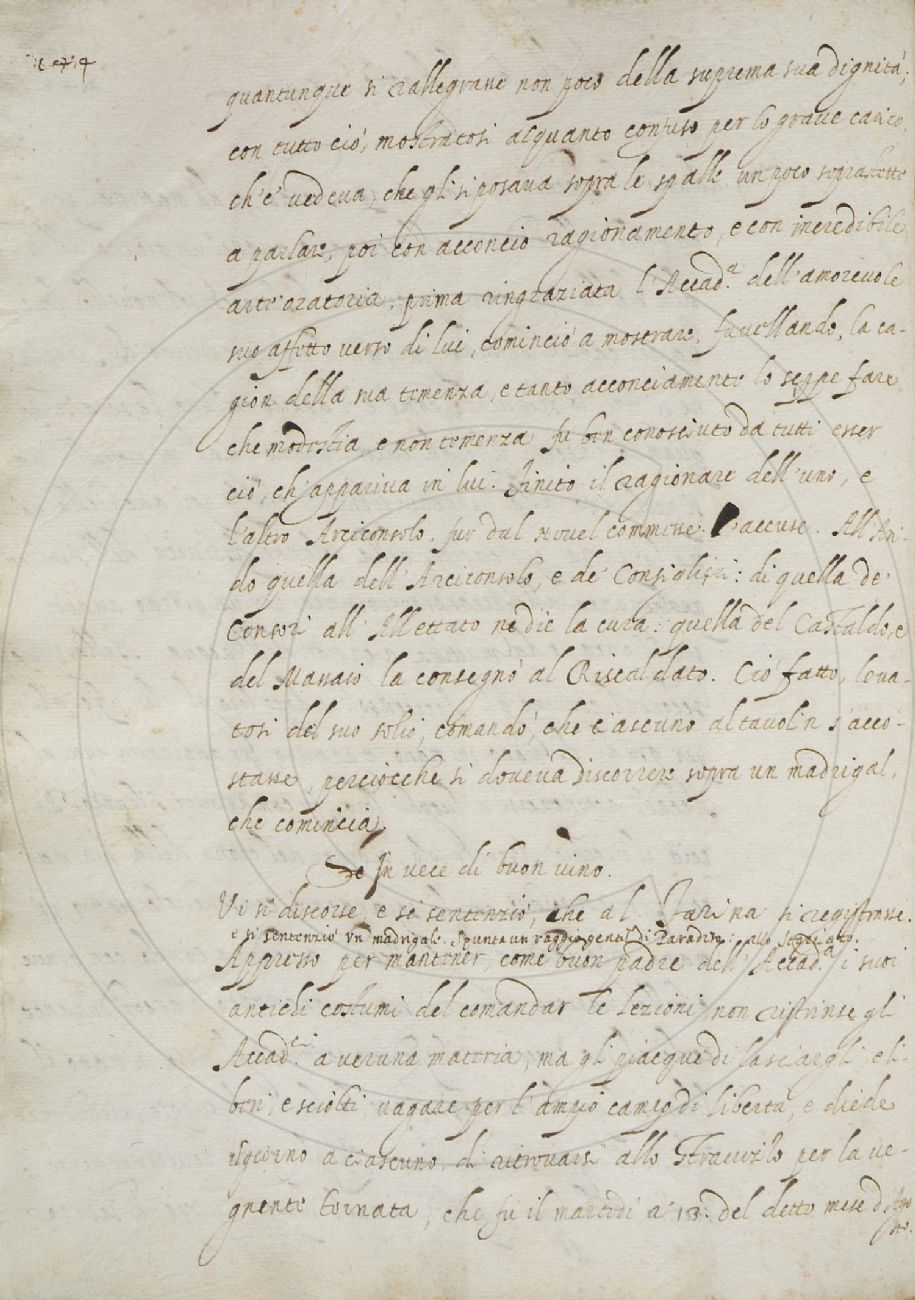 quantunque si rallegrasse non poco della suprema sua dignità,
con tutto ciò, mostratosi alquanto confuso per lo grave carico,
ch'e' vedeva, che gli si posava sopra le spalle, un poco soprastette
a parlare, poi con acconcio ragionamento, e con incredibile
arte oratoria, prima ringraziata l'Accad.a dell'amorevole
suo affetto verso di lui, cominciò a mostrare, favellando, la ca-
gion della sua temenza, e tanto acconciamente lo seppe fare
che modestia, e non temenza fu ben conosciuto da tutti esser
ciò, ch'appariva in lui. Finito il ragionare dell'uno, e
l'altro Arciconsolo, fur dal novel commesse l'accuse. All'Ari-
do quella dell'Arciconsolo, e de' Consiglieri: di quella de'
Censori all'Allettato ne diè la cura: quella del Castaldo, e
del Massaio la consegnò al Riscaldato. Ciò fatto, leva-
tosi del suo solio, comandò, che ciascuno al tavolin s'acco-
stasse, perciocchè si doveva discorrere sopra un madrigal,
che comincia
Se in vece di buon vino.
Vi si discorse, e si sentenziò, che al Farina si registrasse.
e si sentenziò un madrigale. Spunta un raggio gentil di Paradiso: allo
Appresso per mantener, come buon padre dell'Accad.a i suoi
antichi costumi del comandar le lezioni non ristrinse gli
Accad.ci a veruna materia, ma gli piacque di lasciargli, e li-
beri, e sciolti vagare per l'ampio campo di libertà, e diede
il giorno a ciascuno, di ritrovarsi allo Stravizzo per la ve-
gnente tornata, che fu il martedì a' 13. del detto mese d'Ago
sto.